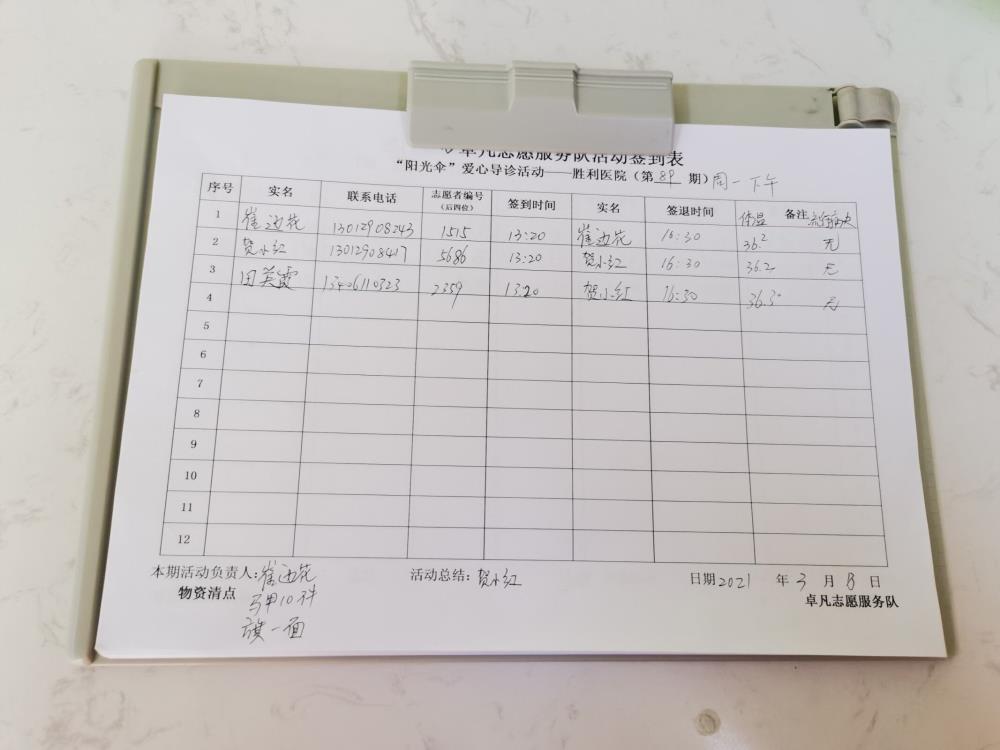 卓凡志愿服务队活动签到表
“阳光伞”爱心导诊活动——胜利医院（第 89 期）周一下午
序号 实名 联系电话 志愿者编号（后四位） 签到时间 实名 签退时间 体温 备注
1 崔迎花 13012908243 1515 13:20 崔迎花 16:30 36.2 无
2 贺小红 13012908417 5686 13:20 贺小红 16:30 36.2 无
3 田英霞 13406110323 2359 13:20 贺小红 16:30 36.3° 无
4
5
6
7
8
9
10
11
12
本期活动负责人:崔迎花 活动总结:贺小红 日期2021 年 3 月 8 日
物资清点 马甲10件 卓凡志愿服务队
旗一面